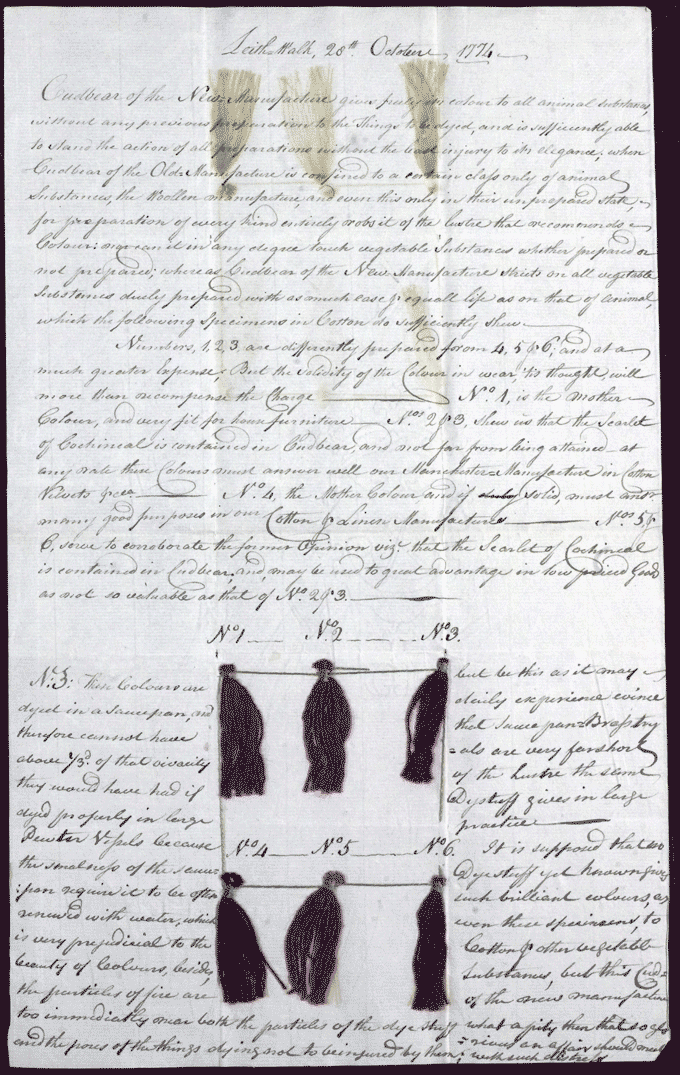 Leith-Walk, 28th October 1774
Cudbear of the New-Manufacture gives freely its colour to all animal substances,
without any previous preparation to the Things to be dyed, and is sufficiently able
to stand the action of all preparations without the least injury to its elegance; when
Cudbear of the Old-Manufacture is confined to a certain class only of animal
Substances, the Woollen manufacture, and even this only in their unprepared state,
for preparation of every kind entirely robs it of the lustre that recommends
Colour: nor can it in any degree touch vegetable Substances whether prepared or
not prepared; whereas Cudbear of the New-Manufacture stricts on all vegetable
Substances duely prepared with as much ease & equall life as on that of animal,
which the following Specimens in Cotton do sufficiently shew.
Numbers, 1, 2, 3, are differently prepared from 4, 5 & 6; and at a
much greater Expense; But the solidity of the Colour in wear, 'tis thought will
more than recompense the Charge No. 1, is the mother
Colour, and very fit for house furniture Nos. 2 & 3, shew us that the Scarlet
of Cochineal is contained in Cudbear, and not far from being attained at
any rate these Colours must answer well our Manchester=Manufacture in Cotton
Velvets No. 4, the Mother Colour and if solid, must answr
many good purposes in our Cotton & Linen Manufactures Nos 5 &
6, serve to coroborate the former Opinion vizt. that the Scarlet of Cochineal
is contained in Cudbear, and, may be used to great advantage in low priced Goods
as not so valuable as that of No. 2 & 3.
No. 1 No. 2 No. 3.
N.B. These Colours are
dyed in a saucepan, and
therefore cannot have
above ⅓d. of that vivacity
they would have had if
dyed properly in large
Pewter Vessels because
the smalness of the sauce-
pan require it to be often
renewed with water, which
is very prejudicial to the
beauty of Colours, besides,
the particles of fire are
too immediatly near both the particles of the dye stuff
and the pores of the things dying not to be injured by them
No. 4 No. 5 No. 6.
but be this as it may
daily experience evince
that sauce pan=Brass try
=als are very far short
of the lustre the same
Dyestuff gives in large
practice
It is supposed that no
Dye stuff yet known gives
such brilliant colours, as
even these specimens, to
Cotton & other vegetable
Substances, but this Cud=
of the new manufacture
what a pity then that so glo
=rious an affair should meet
with such distress